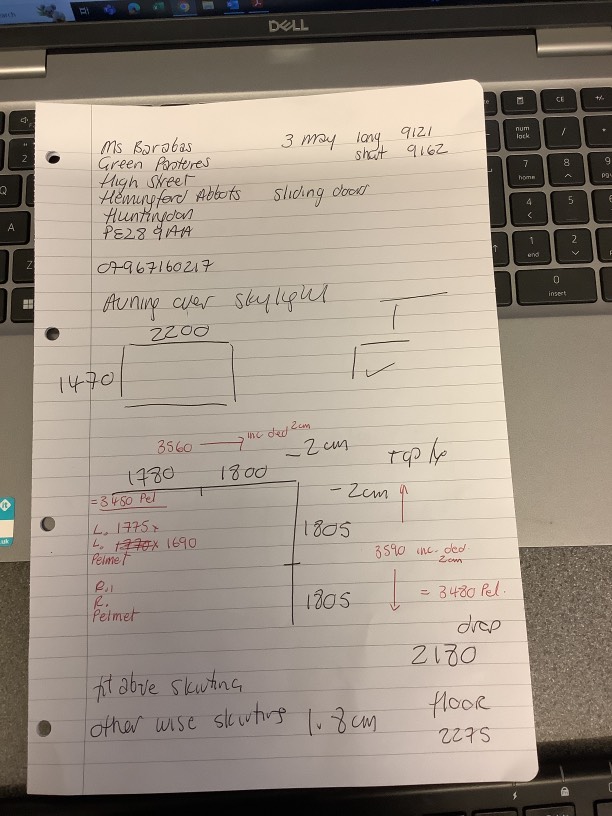 DELL
Ms Barabas
3 may long 9121
short 9162
Green Pastures
High Street
Hemingford Abbots sliding doors
Huntingdon
PE28 9AA
07967160217
Awning over skylight
2200
1470
3560 → inc ded 2cm
- 2cm
1780 1800
Top fix
= 3450 Pel
- 2cm
L. 1775x
1805
L. 1770x 1690
Pelmet
3590 inc. ded
2cm
R.1
R.
Pelmet
1805
= 3480 Pel.
drop
2180
fit above skirting
floor
other wise skirting 1.8cm
2275